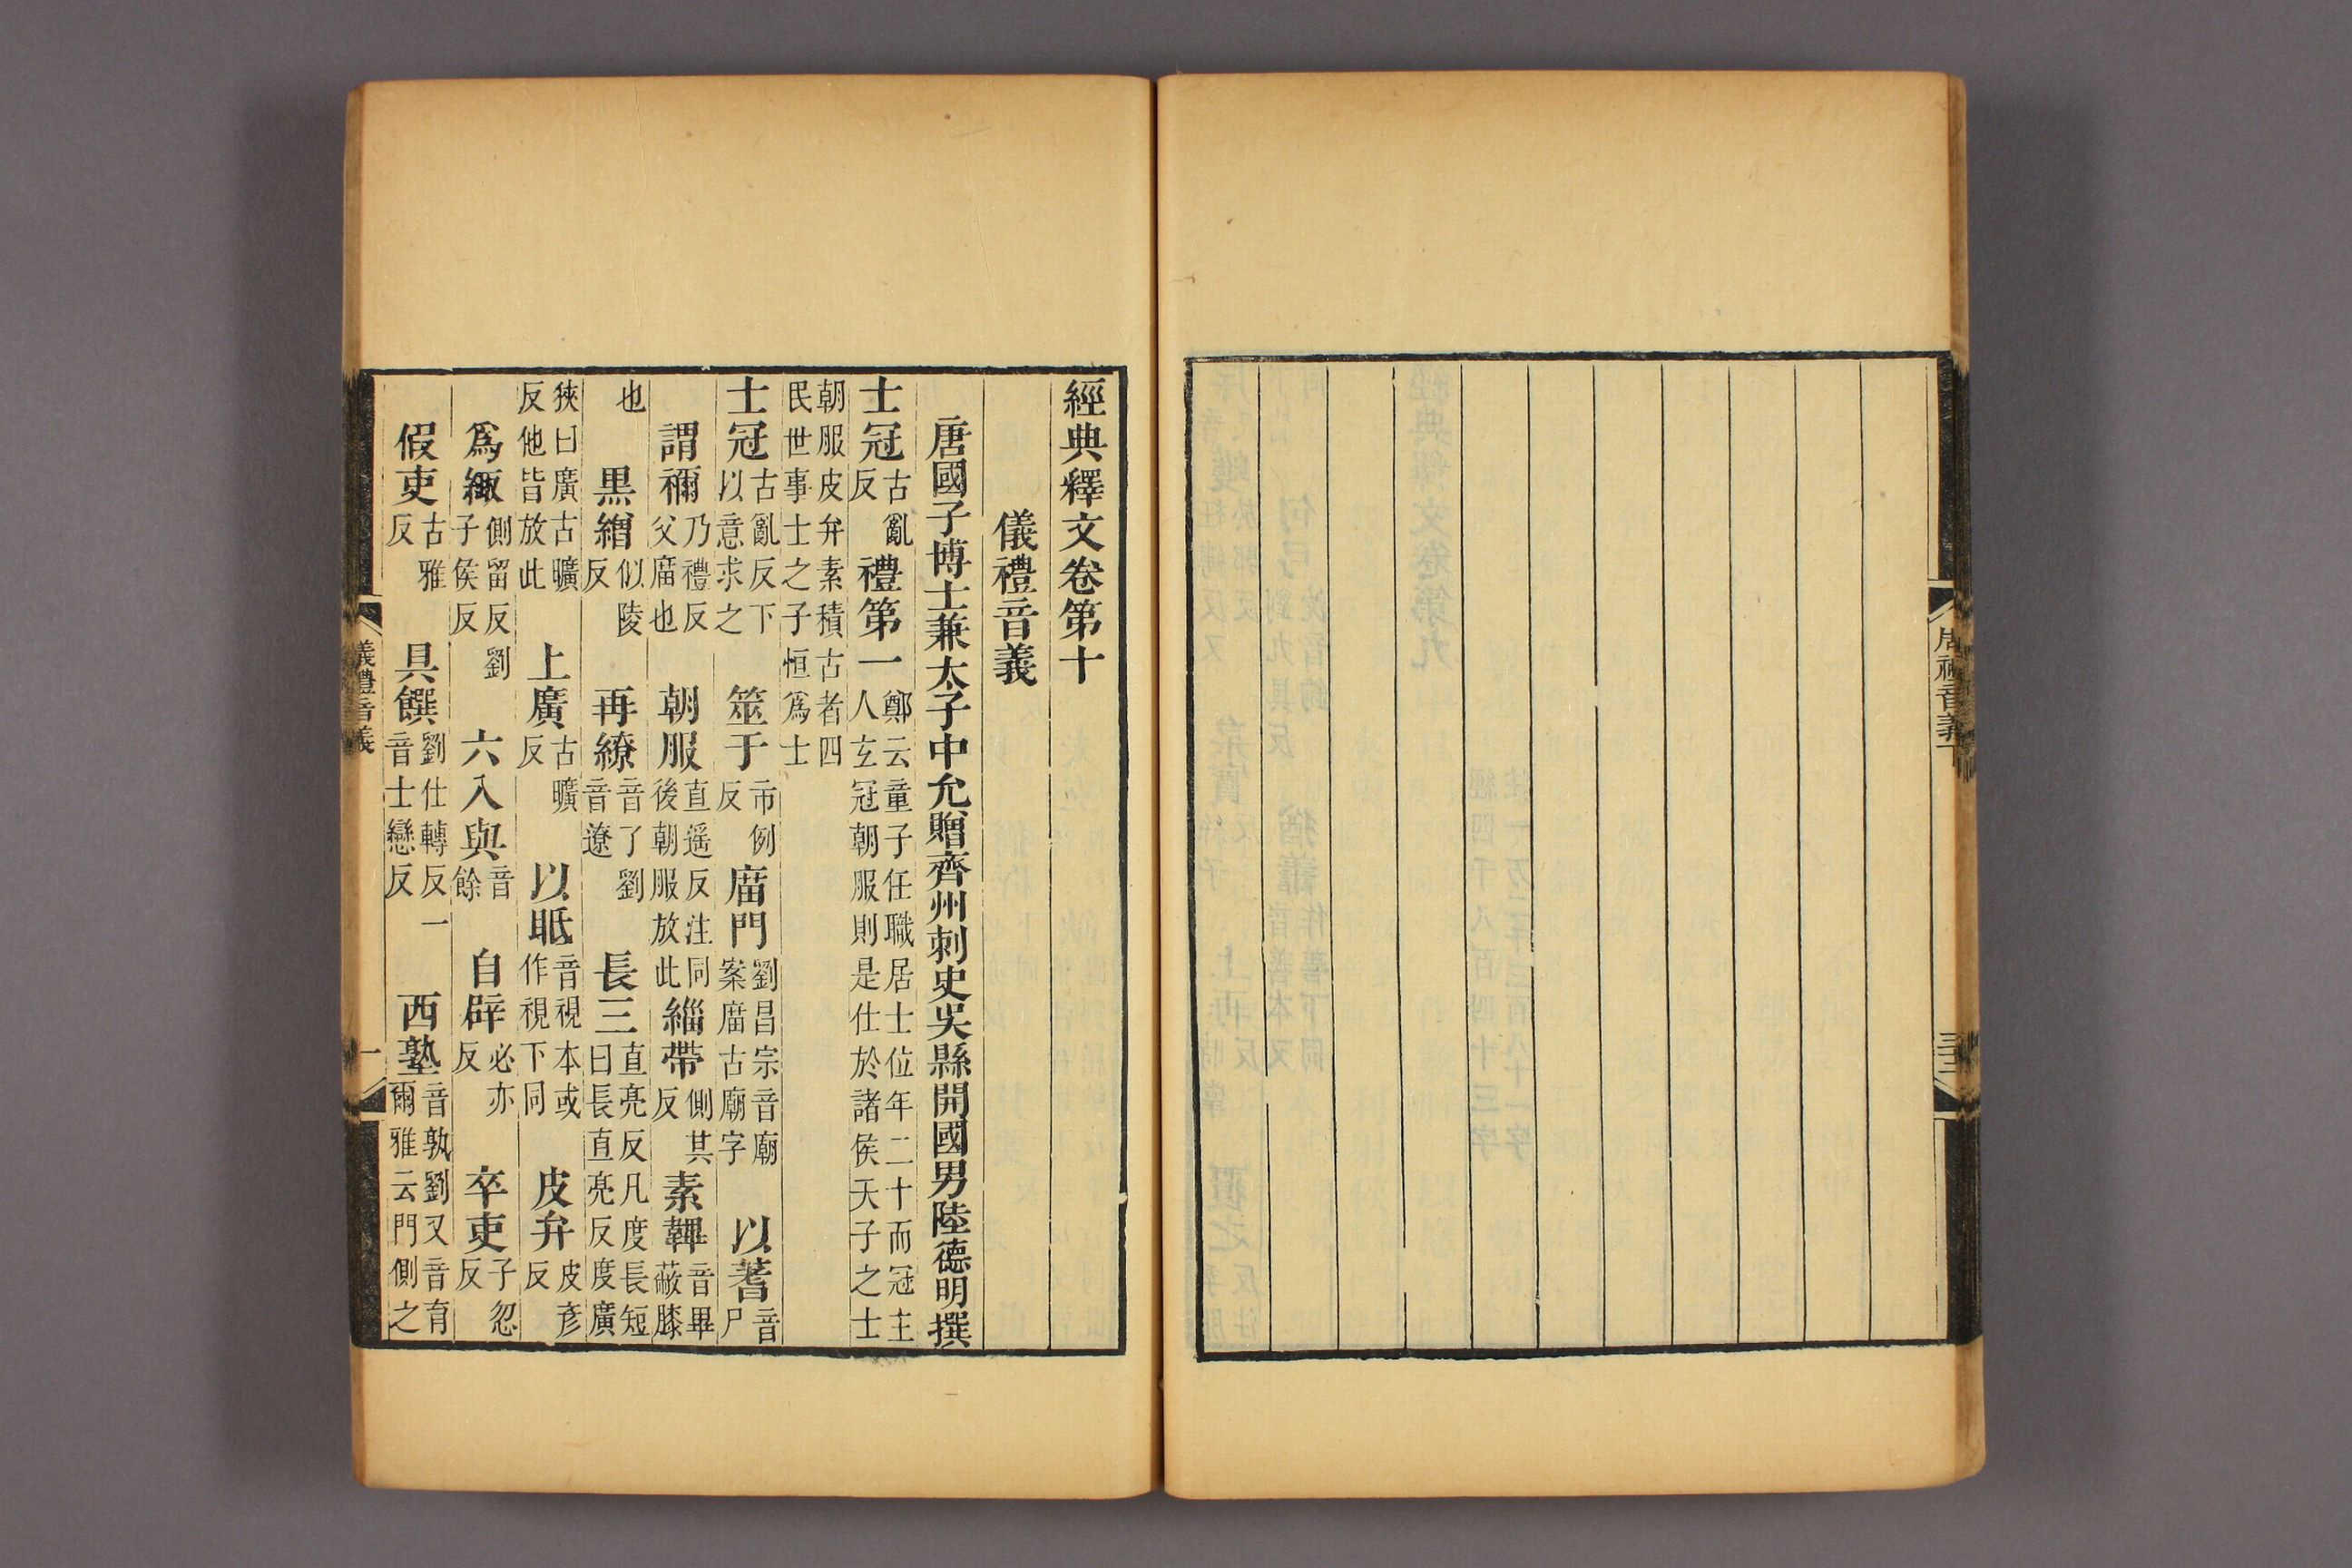 周禮音義下
三十三
經典釋文卷第十
儀禮音義
唐國子博士兼太子中允贈齊州刺史吳縣開國男陸德明撰
士冠古亂反禮第一鄭云童子任職居士位年二十而冠主人玄冠朝服則是仕於諸侯天子之士
朝服皮弁素積古者四民世事士之子恒爲士
士冠古亂反下以意求之筮于市例反庿門劉昌宗音廟案庿古廟字以蓍音尸
謂禰乃禮反父庿也朝服直遥反注同後朝服放此緇帶側其反素韠音畢蔽膝
也黒繒似陵反再繚音了劉音遼長三直亮反凡度長短曰長直亮反度廣
狹曰廣古曠反他皆放此上廣古曠反以眡音視本或作視下同皮弁皮彥反
爲緅側留反劉子侯反六入與音餘自辟必亦反卒吏子忽反
假吏古雅反具饌劉仕轉反一音士戀反西塾音孰劉又音育爾雅云門側之
儀禮音義
一